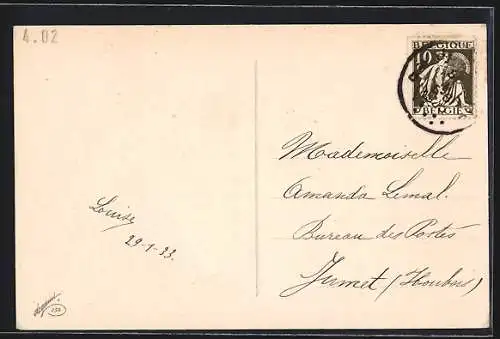 4.02
BELGIQUE
10
BELGIË
Mademoiselle
Amanda Lemal.
Bureau des Postes
Jumet (Houbois)
Louise
29-1-33.